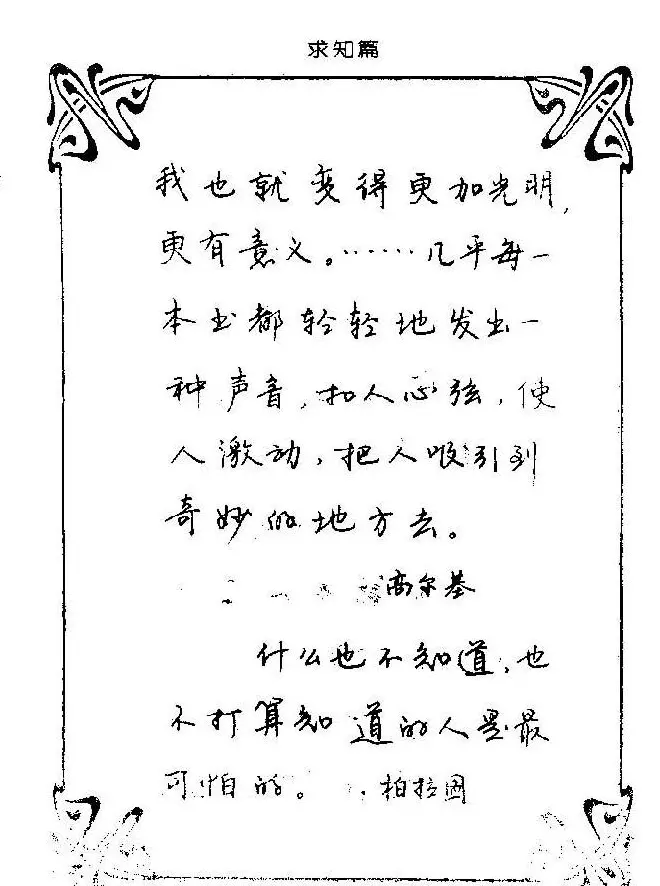 求知篇
我也就变得更加光明,
更有意义。……几乎每一
本书都轻轻地发出一
种声音,扣人心弦,使
人激动,把人吸引到
奇妙的地方去。
高尔基
什么也不知道,也
不打算知道的人是最
可怕的。柏拉图